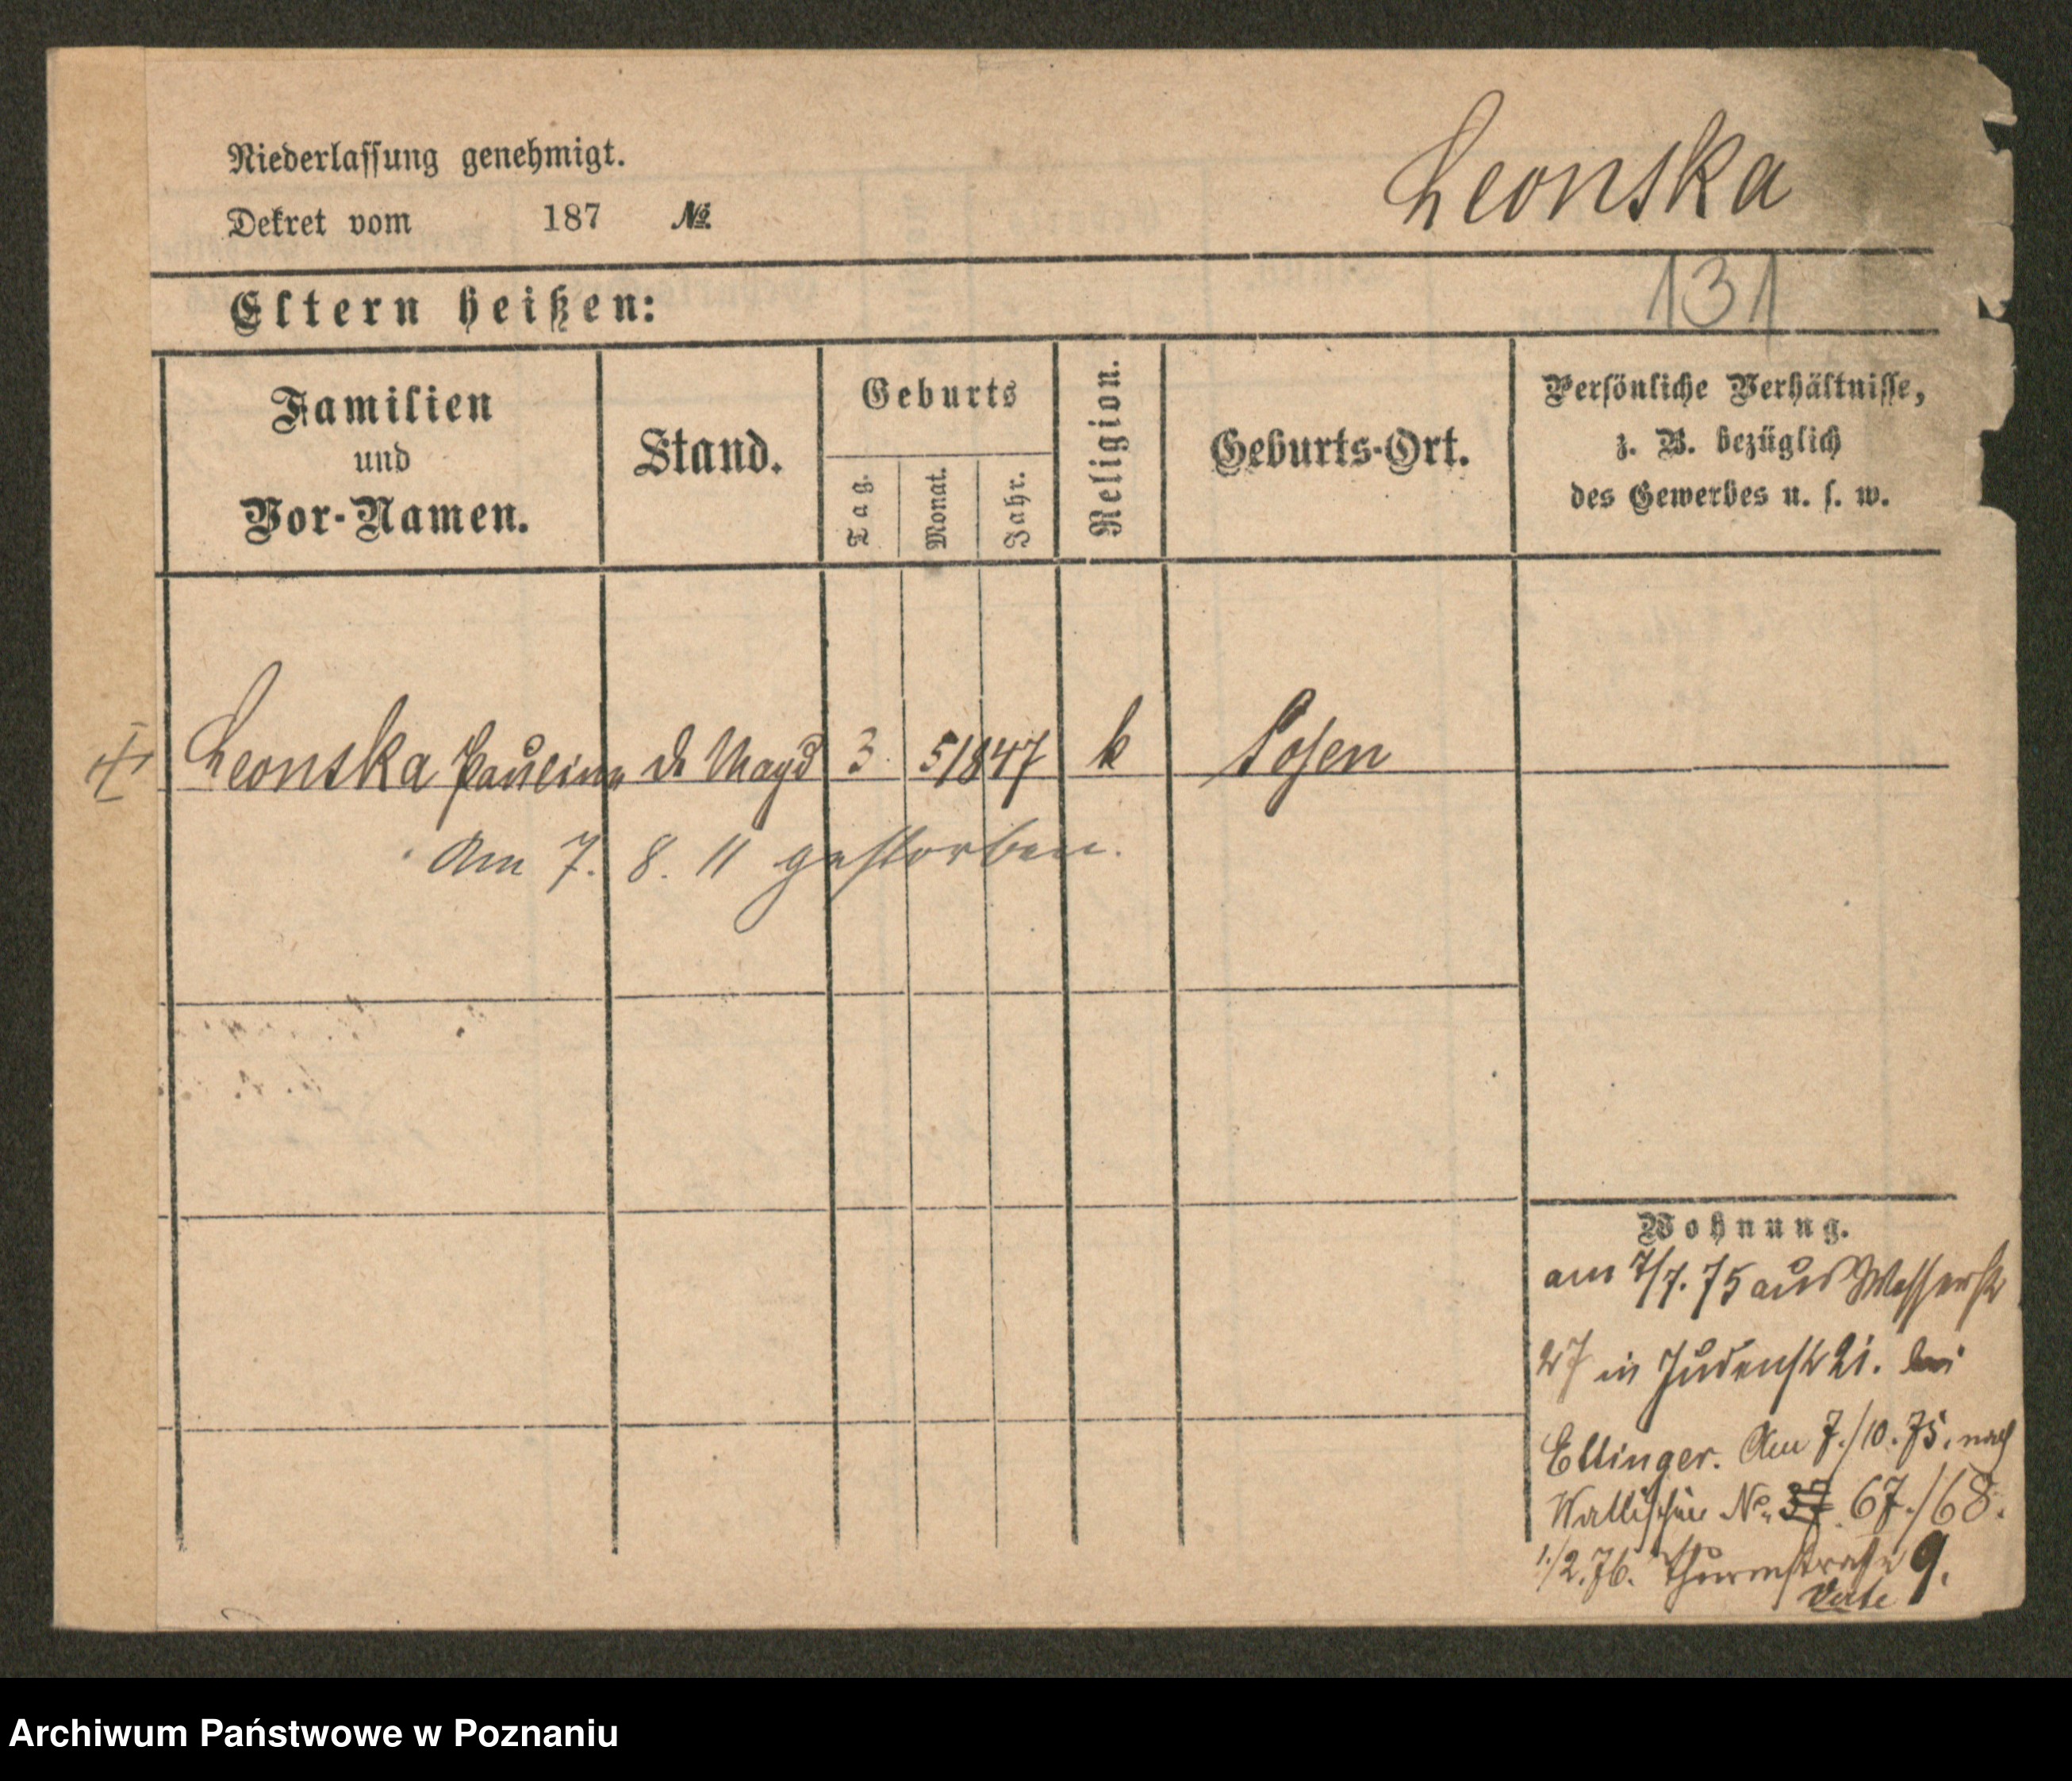 Niederlassung genehmigt.
Leonska
Dekret vom 187 No.
131
Eltern heißen:
Familien und Vor-Namen.
Stand.
Geburts
Tag.
Monat.
Jahr.
Religion.
Geburts-Ort.
Persönliche Verhältnisse,
z. B. bezüglich
des Gewerbes u. s. w.
Leonska Pauline d. Magd 3. 5 1847 k Posen
Am 7. 8. 11 gestorben.
Wohnung.
am 7/7. 75 aus Wasserstr
27 in Judenstr 21. bei
Ettinger. Am 7./10. 75. nach
Wallischei No. 37 67./68.
1./2. 76. Thurmstraße 9.
Verte
Archiwum Państwowe w Poznaniu